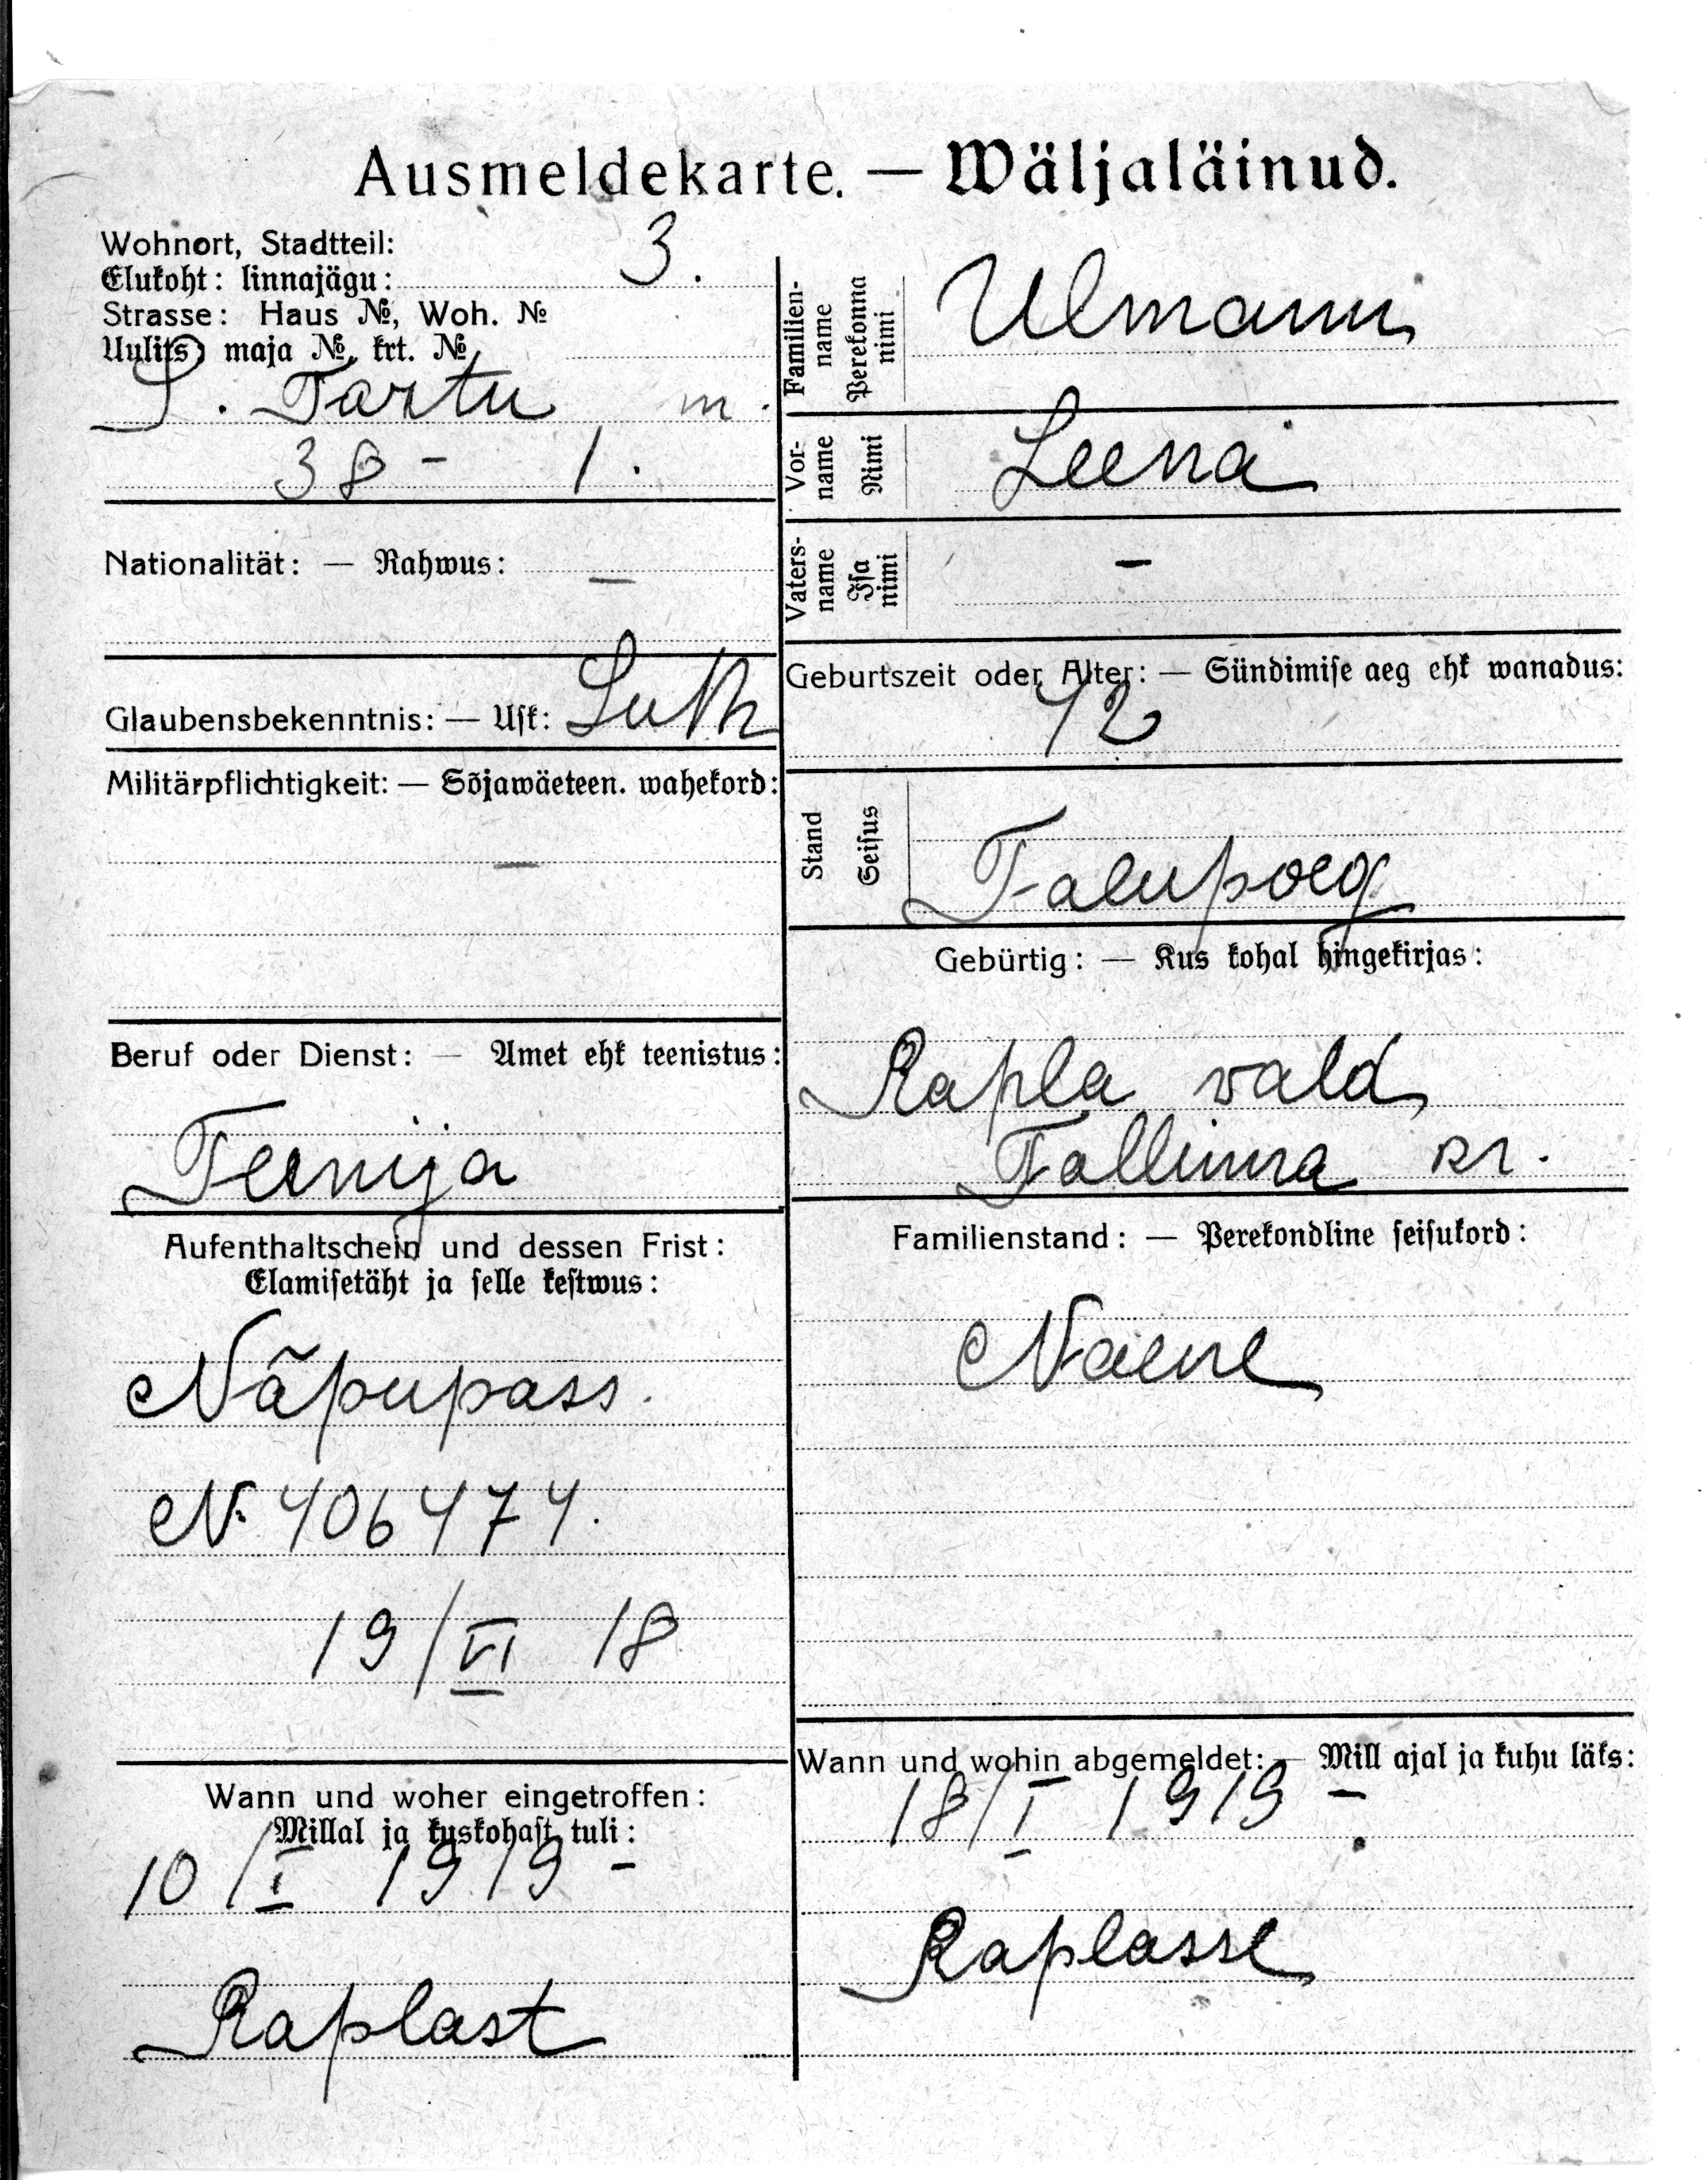 Ausmeldekarte. — Wäljaläinud.
Wohnort, Stadtteil:
Elukoht: linnajägu: 3.
Strasse: Haus №, Woh. №
Uulits, maja №, krt. №
S. Tartu m.
38 - 1.
Nationalität: — Rahwus: —
Glaubensbekenntnis: — Usk: Luth
Militärpflichtigkeit: — Sõjawäeteen. wahekord:
—
Beruf oder Dienst: — Amet ehk teenistus:
Teenija
Aufenthaltschein und dessen Frist:
Elamisetäht ja selle kestwus:
Nãpupass.
N. 406474.
19/VI 18
Wann und woher eingetroffen:
Millal ja kuskohast tuli:
10/I 1919 -
Raplast
Familien-
name
Perekonna
nimi
Ulmann
Vor-
name
Nimi
Leena
Vaters-
name
Isa
nimi
-
Geburtszeit oder Alter: — Sündimise aeg ehk wanadus:
42
Stand
Seisus
Talupoeg
Gebürtig: — Kus kohal hingekirjas:
Rapla vald
Tallinna kr.
Familienstand: — Perekondline seisukord:
Naene
Wann und wohin abgemeldet: — Mill ajal ja kuhu läks:
18/I 1919 -
Raplasse